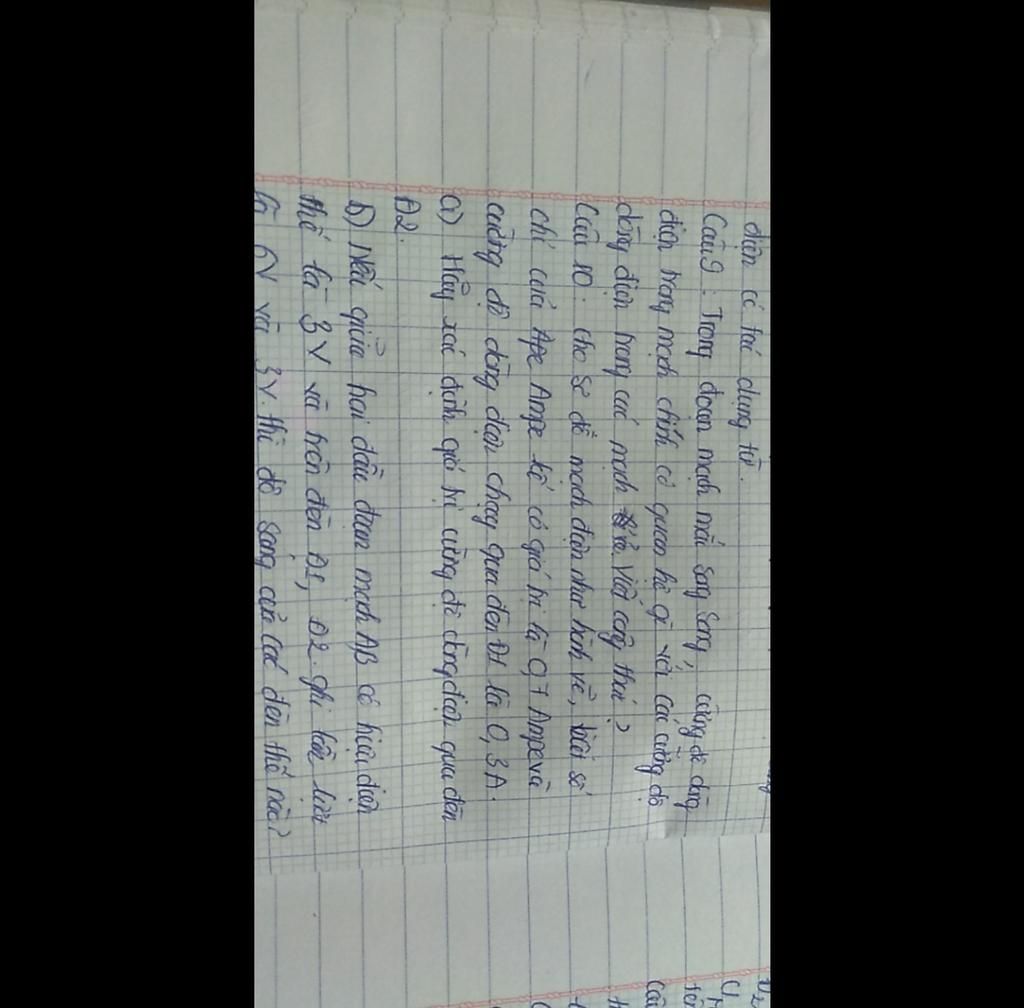 điện có tác dụng từ.
Câu 9: Trong đoạn mạch mắc song song, cường độ dòng
điện trong mạch chính có quan hệ gì với các cường độ
dòng điện trong các mạch rẽ. Viết công thức?
Câu 10: cho sơ đồ mạch điện như hình vẽ, biết số
chỉ của Ape Ampe kế có giá trị là 0,7 Ampe và
cường độ dòng điện chạy qua đèn Đ1 là 0,3A.
a) Hãy xác định giá trị cường độ dòng điện qua đèn
Đ2.
b) Nếu giữa hai đầu đoạn mạch AB có hiệu điện
thế là 3V và trên đèn Đ1, Đ2 ghi lần lượt
là 6V và 3V. thì độ sáng của các đèn thế nào?
Câu